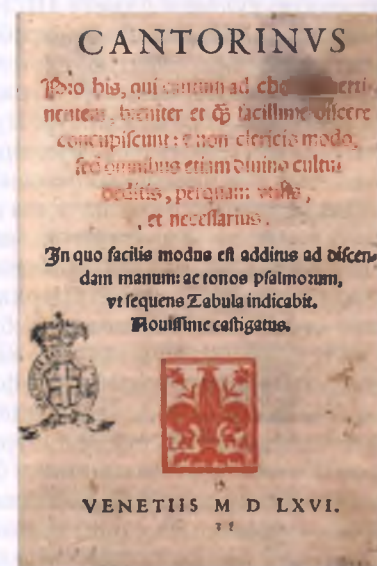 CANTORINVS
Pro his, qui cantum ad
nentem, breuiter et q̃ facillime discere
concupiscunt: et non clericis modo,
sed omnibus etiam diuino cultui
deditis, perquam vtilis,
et necessarius.
In quo facilis modus est additus ad discen-
dam manum: ac tonos psalmorum,
vt sequens Tabula indicabit.
Nouissime castigatus.
VENETIIS M D LXVI.